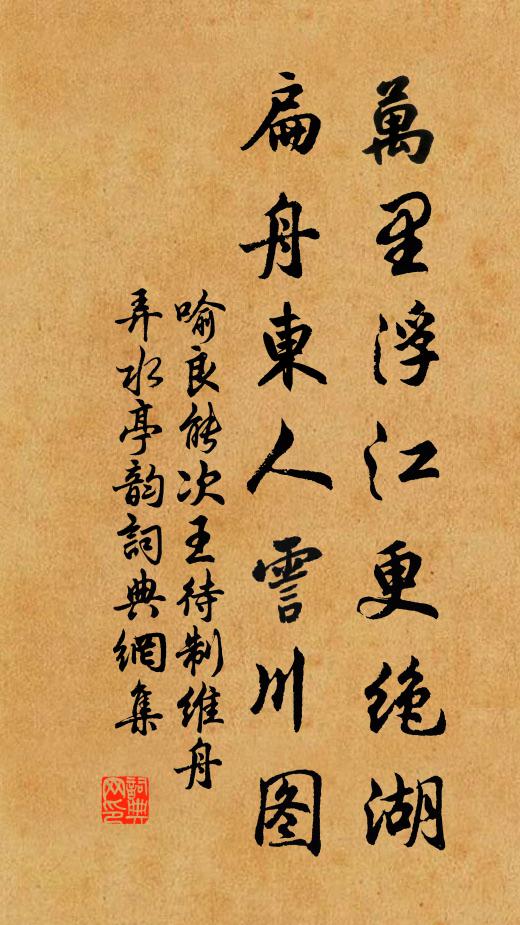 萬里浮江更绝湖
扁舟東人霅川图
喻良能次王待制維舟
弄水亭韵詞典網集
詞典
网印